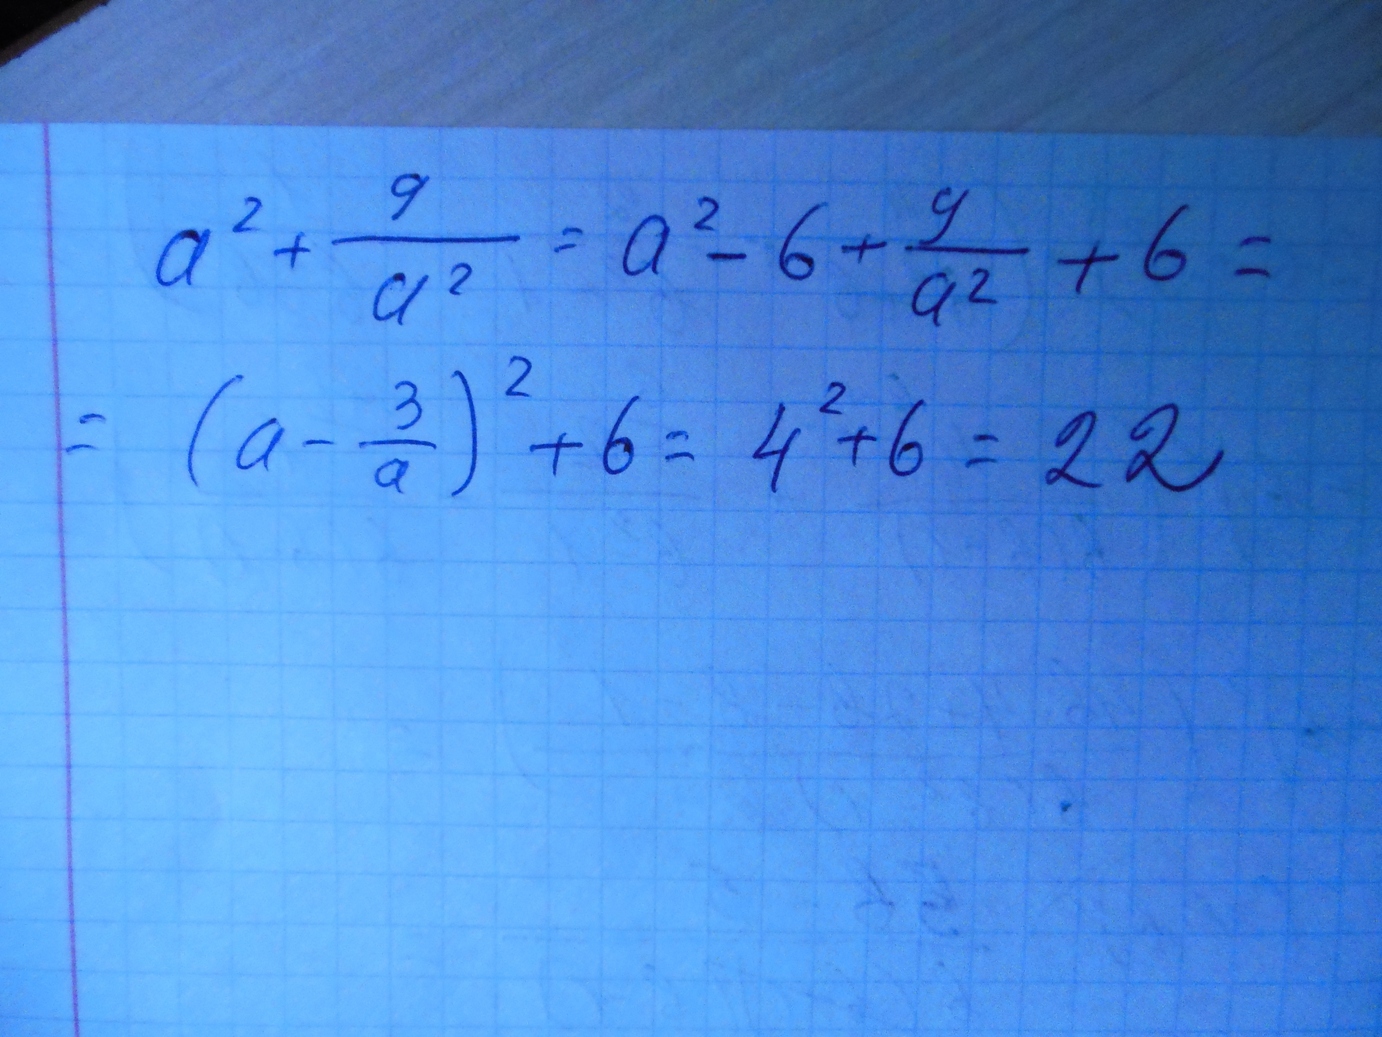 a² + 9/a² = a² - 6 + 9/a² + 6 =
= (a - 3/a)² + 6 = 4² + 6 = 22